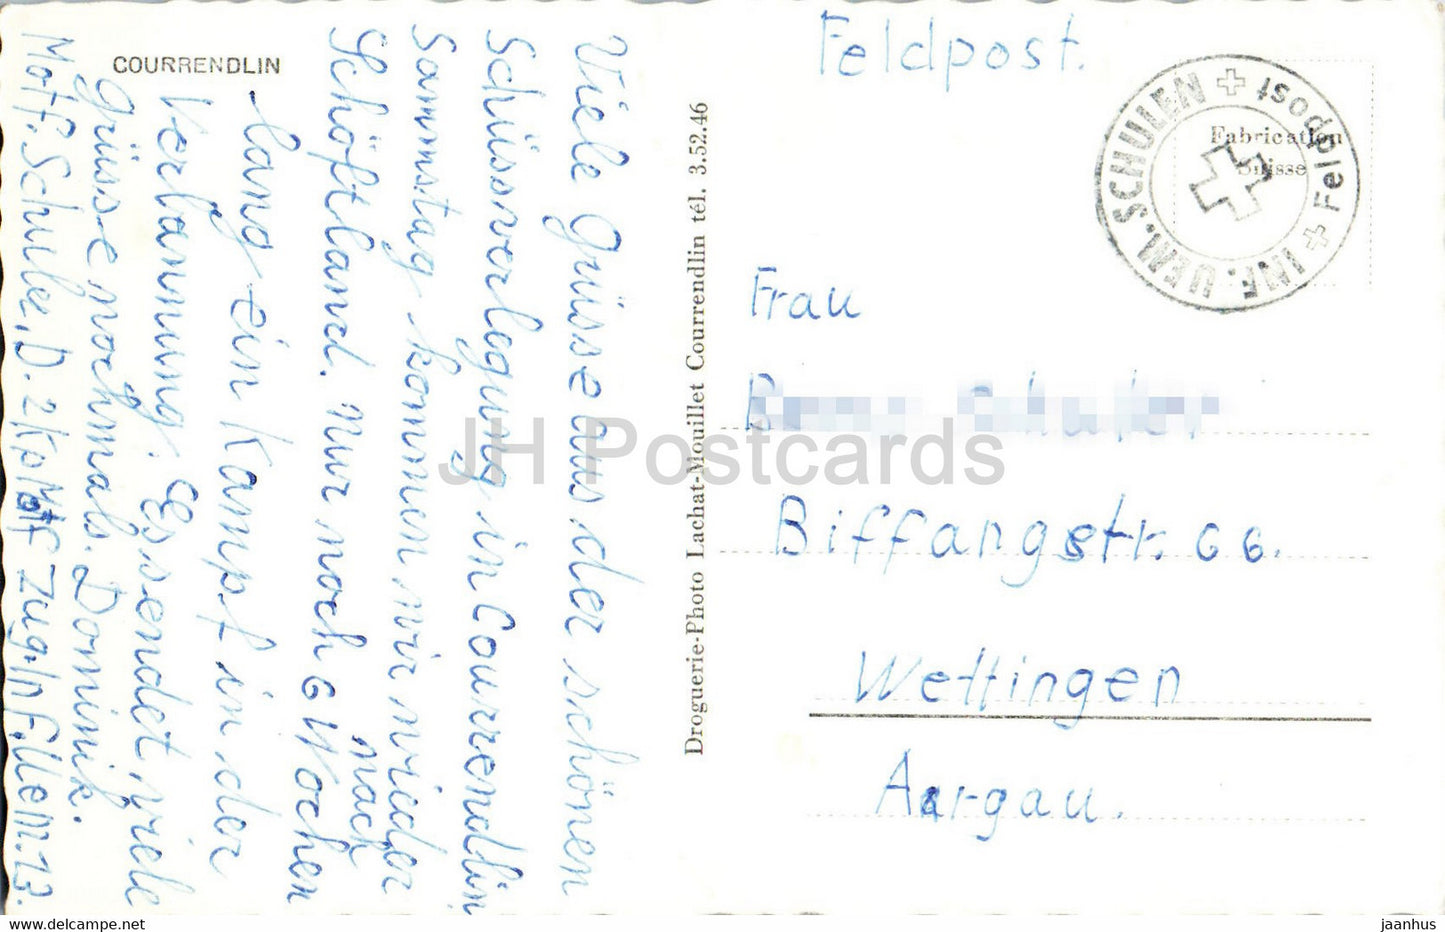 COURRENDLIN
Viele Grüsse aus der schönen
Schüssverlegung in Courrendlin
Sammstag kommen wir wieder
nach
Schöftland. nur noch 6 Wochen
lang ein Kampf in der
Verbannung. Es sendet viele
Grüsse nochmals. Dominik.
Motf. Schule, D. 2 Kp Motf Zug. Inf. Uem. 13.
Droguerie-Photo Lachat-Mouillet Courrendlin tél. 3.52.46
Feldpost.
INF. UEM. SCHULEN + Feldpost +
Fabrication
Suisse
Frau
Biffangstr. 66.
Wettingen
Aargau.
JH Postcards
www.delcampe.net
jaanhus